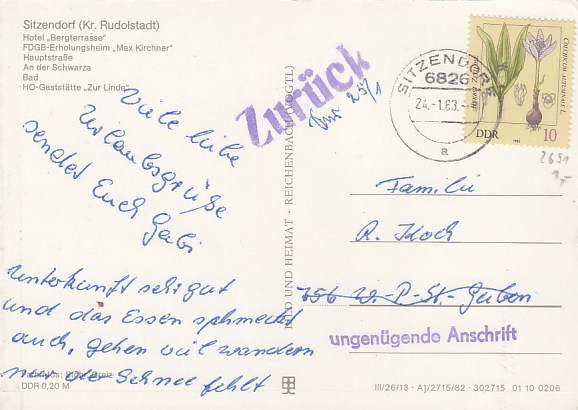 Sitzendorf (Kr. Rudolstadt)
Hotel „Bergterrasse"
FDGB-Erholungsheim „Max Kirchner"
Hauptstraße
An der Schwarza
Bad
HO-Gaststätte „Zur Linde"
Viele liebe
Urlaubsgrüße
sendet Euch
Gabi
Unterkunft sehr gut
und das Essen schmeckt
auch, gehen viel wandern
nur der Schnee fehlt
DDR 0,20 M
BILD UND HEIMAT · REICHENBACH (VOGTL)
Zurück
25/1
SITZENDORF
6826
24.-1.83.
a
COLCHICUM AUTUMNALE L.
DDR
10
2691
Familie
R. Koch
756 W.-P.-St.-Guben
ungenügende Anschrift
III/26/13 · A1/2715/82 · 302715 01 10 0206